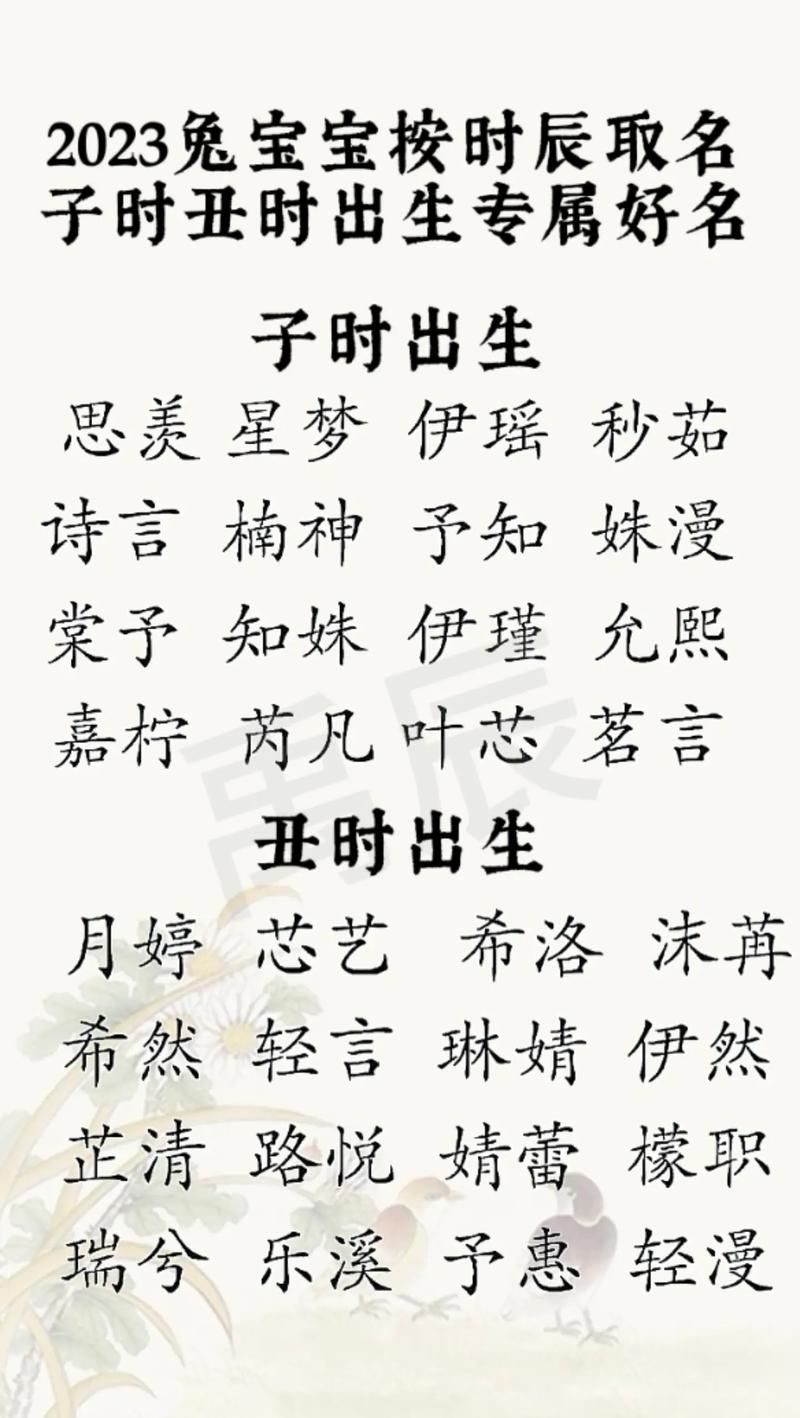 2023兔宝宝按时辰取名
子时丑时出生专属好名
子时出生
思羡 星梦 伊瑶 秒茹
诗言 楠神 予知 姝漫
棠予 知姝 伊瑾 允熙
嘉柠 芮凡 叶芯 茗言
禹辰
丑时出生
月婷 芯艺 希洛 沫苒
希然 轻言 琳婧 伊然
芷清 路悦 婧蕾 檬职
瑞兮 乐溪 予惠 轻漫